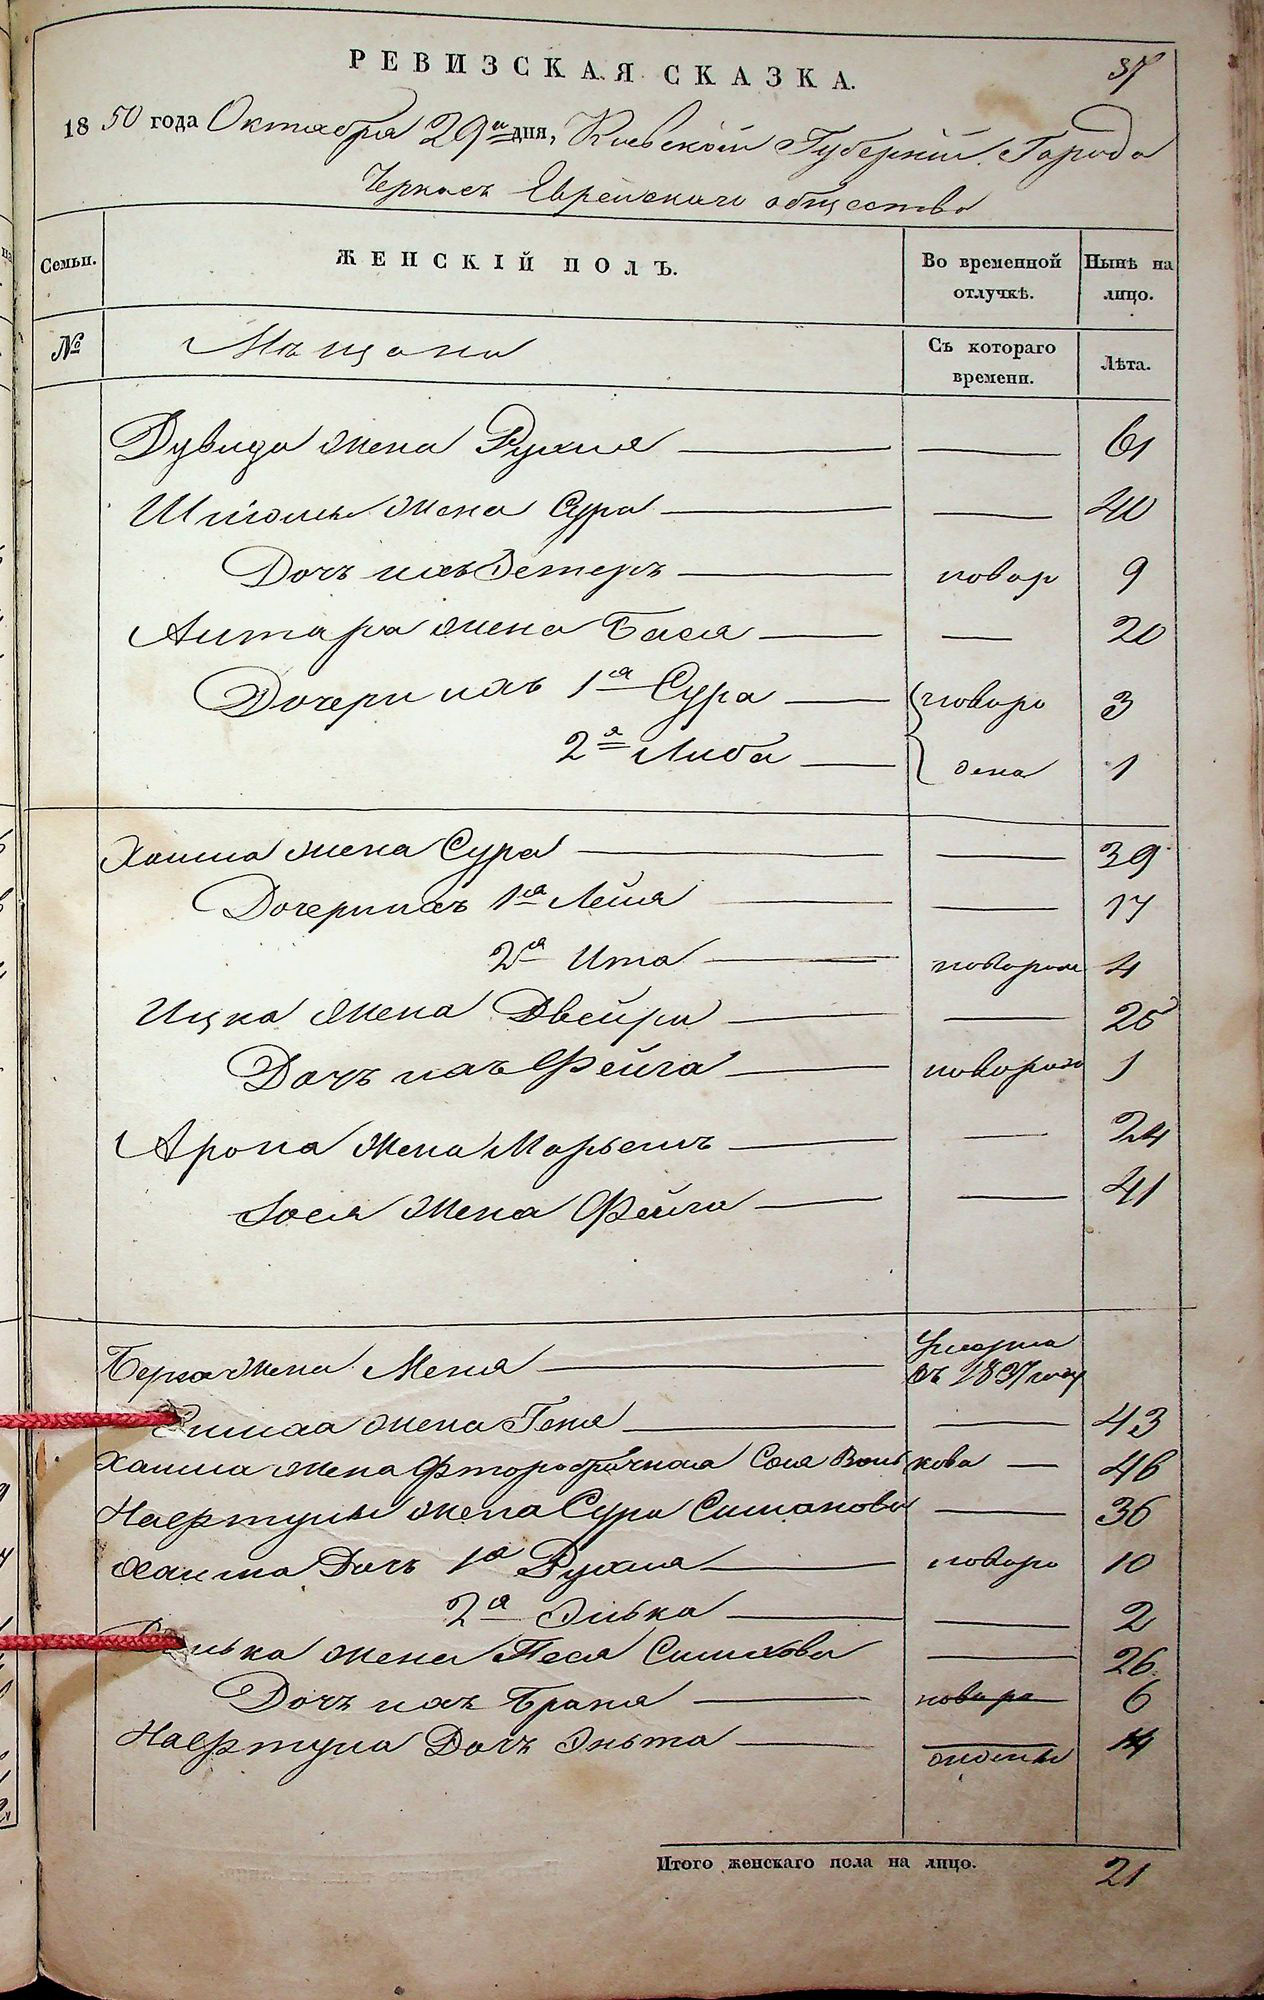 РЕВИЗСКАЯ СКАЗКА.
37
18 50 года Октября 29 дня, Киевской Губернии Города
Черкасъ Еврейскаго общества
Семьи.
ЖЕНСКІЙ ПОЛЪ.
Во временной отлучкѣ.
Нынѣ на лицо.
№
Мѣщане
Съ котораго времени.
Лѣта.
Дувида жена Рухля — — 61
жена Сура — — 40
Дочь ихъ Эстеръ — 9
жена Бася — — 20
Дочери ихъ 1я Сура — 3
2я Либа — 1
Хаима жена Сура — — 39
Дочери ихъ 1я Лейя — — 17
2я Ита — 4
Ицка жена Двейра — — 25
Дочь ихъ Фейга — 1
Арона жена Марьемъ — — 24
жена Фейга — — 41
Берка жена Меня — умерла въ 1837 году
жена Геня — — 43
Хаима жена Фторобрачная Сося Волькова — 46
Нафтулы жена Сура — 36
Хаима Дочь 1я Рухля — 10
2я Элька — — 2
жена Песя — 26
Дочь ихъ Брана — 6
Нафтула Дочь Эньта —
Итого женскаго пола на лицо. 21